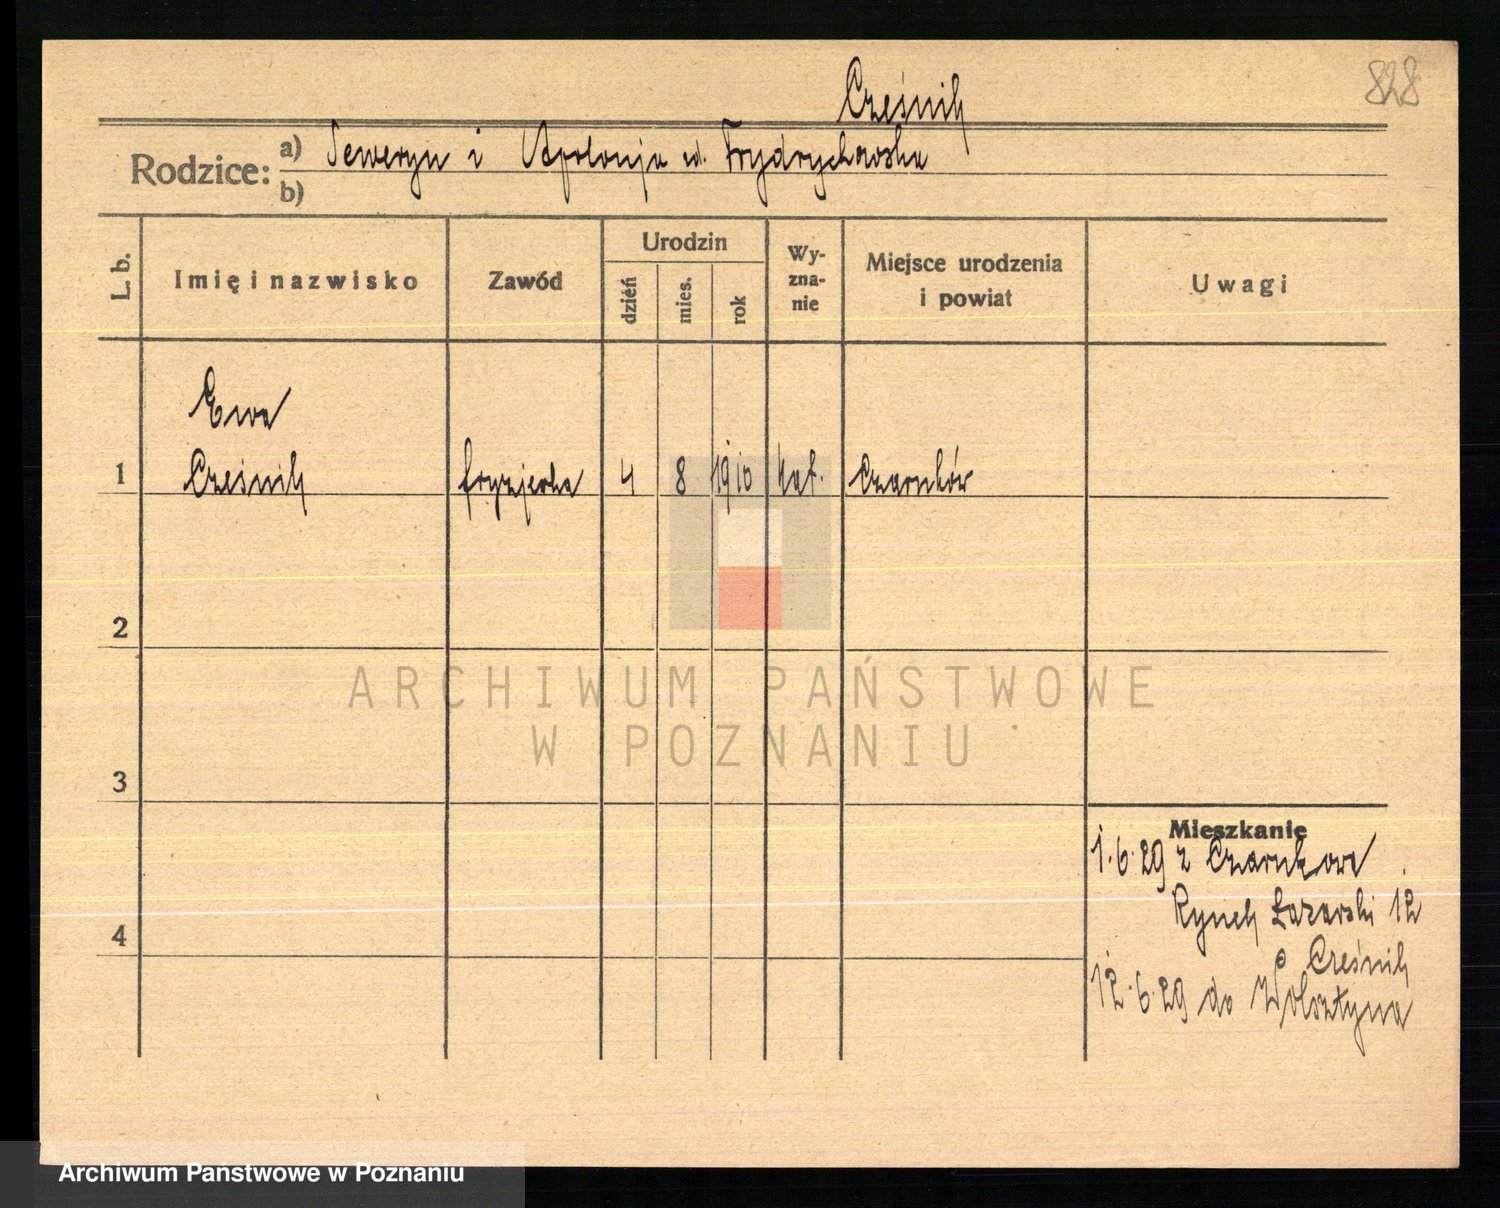 Cześnik
828
Rodzice: a) Seweryn i Apolonja ud. Frydrychowska
b)
L. b.
Imię i nazwisko
Zawód
Urodzin
dzień
mies.
rok
Wy-
zna-
nie
Miejsce urodzenia
i powiat
Uwagi
Ewa
1 Cześnik fryzjerka 4 8 1910 kat. Czarnków
2
3
4
Mieszkanie
1.6.29 z Czarnkowa
Rynek Łazarski 12
Cześnik
12.6.29 do Wolsztyna
ARCHIWUM PAŃSTWOWE
W POZNANIU
Archiwum Państwowe w Poznaniu